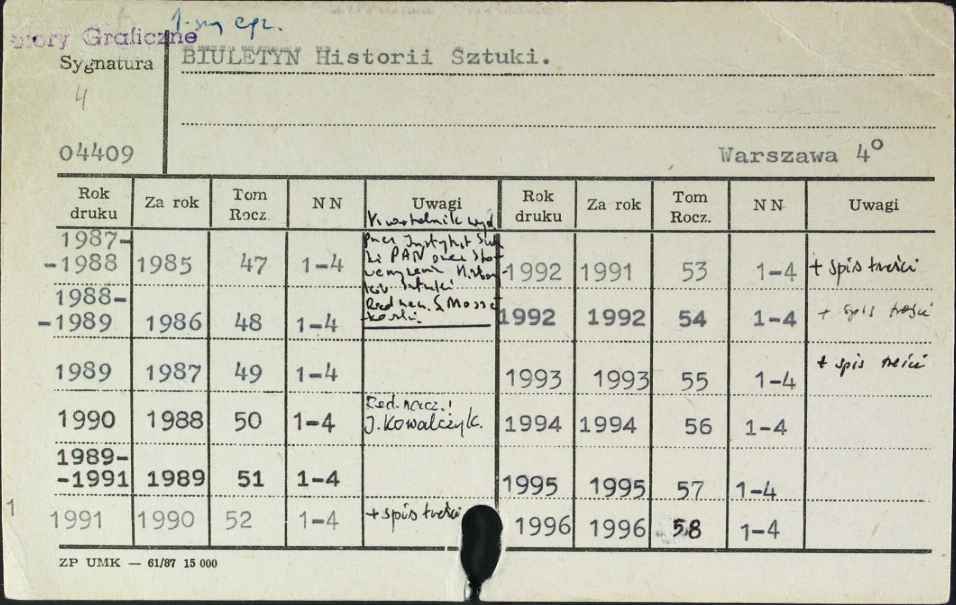 1-szy egz.
Zbiory Graficzne
Sygnatura
BIULETYN Historii Sztuki.
4
04409
Warszawa 4°
Rok druku Za rok Tom Rocz. NN Uwagi Rok druku Za rok Tom Rocz. NN Uwagi
Kwartalnik wyd.
przez Instytut Sztuki PAN oraz Stowarzyszenie Historyków Sztuki
1987-
-1988 1985 47 1-4 -1992 1991 53 1-4 + spis treści
1988-
-1989 1986 48 1-4 1992 1992 54 1-4 + spis treści
1989 1987 49 1-4 1993 1993 55 1-4 + spis treści
Red. nacz.:
1990 1988 50 1-4 J. Kowalczyk. 1994 1994 56 1-4
1989-
-1991 1989 51 1-4 1995 1995 57 1-4
1991 1990 52 1-4 + spis treści 1996 1996 58 1-4
1
ZP UMK — 61/87 15 000